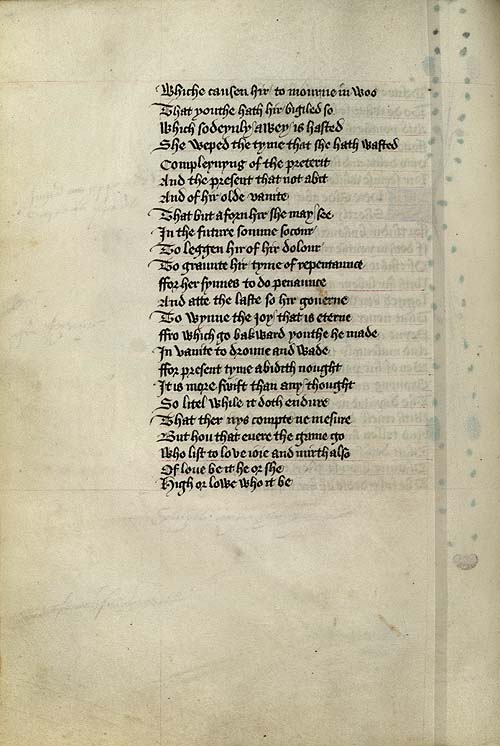 Whiche causen hir to mourne in woo
That youthe hath hir bigiled so
Which sodeynly awey is hasted
She weped the tyme that she hath wasted
Compleynyng of the preterit
And the present that not abit
And of hir olde vanite
That but aforn hir she may see
In the future somme socour
To leggen hir of hir dolour
To graunte hir tyme of repentaunce
ffor her synnes to do penaunce
And atte the laste so hir gouerne
To wynne the joy that is eterne
ffro which go bakward youthe he made
In vanite to droune and wade
ffor present tyme abidith nought
It is more swift than any thought
So litel while it doth endure
That ther nys compte ne mesure
But hou that euere the game go
Who list to loue ioie and mirth also
Of loue be it he or she
High or lowe who it be